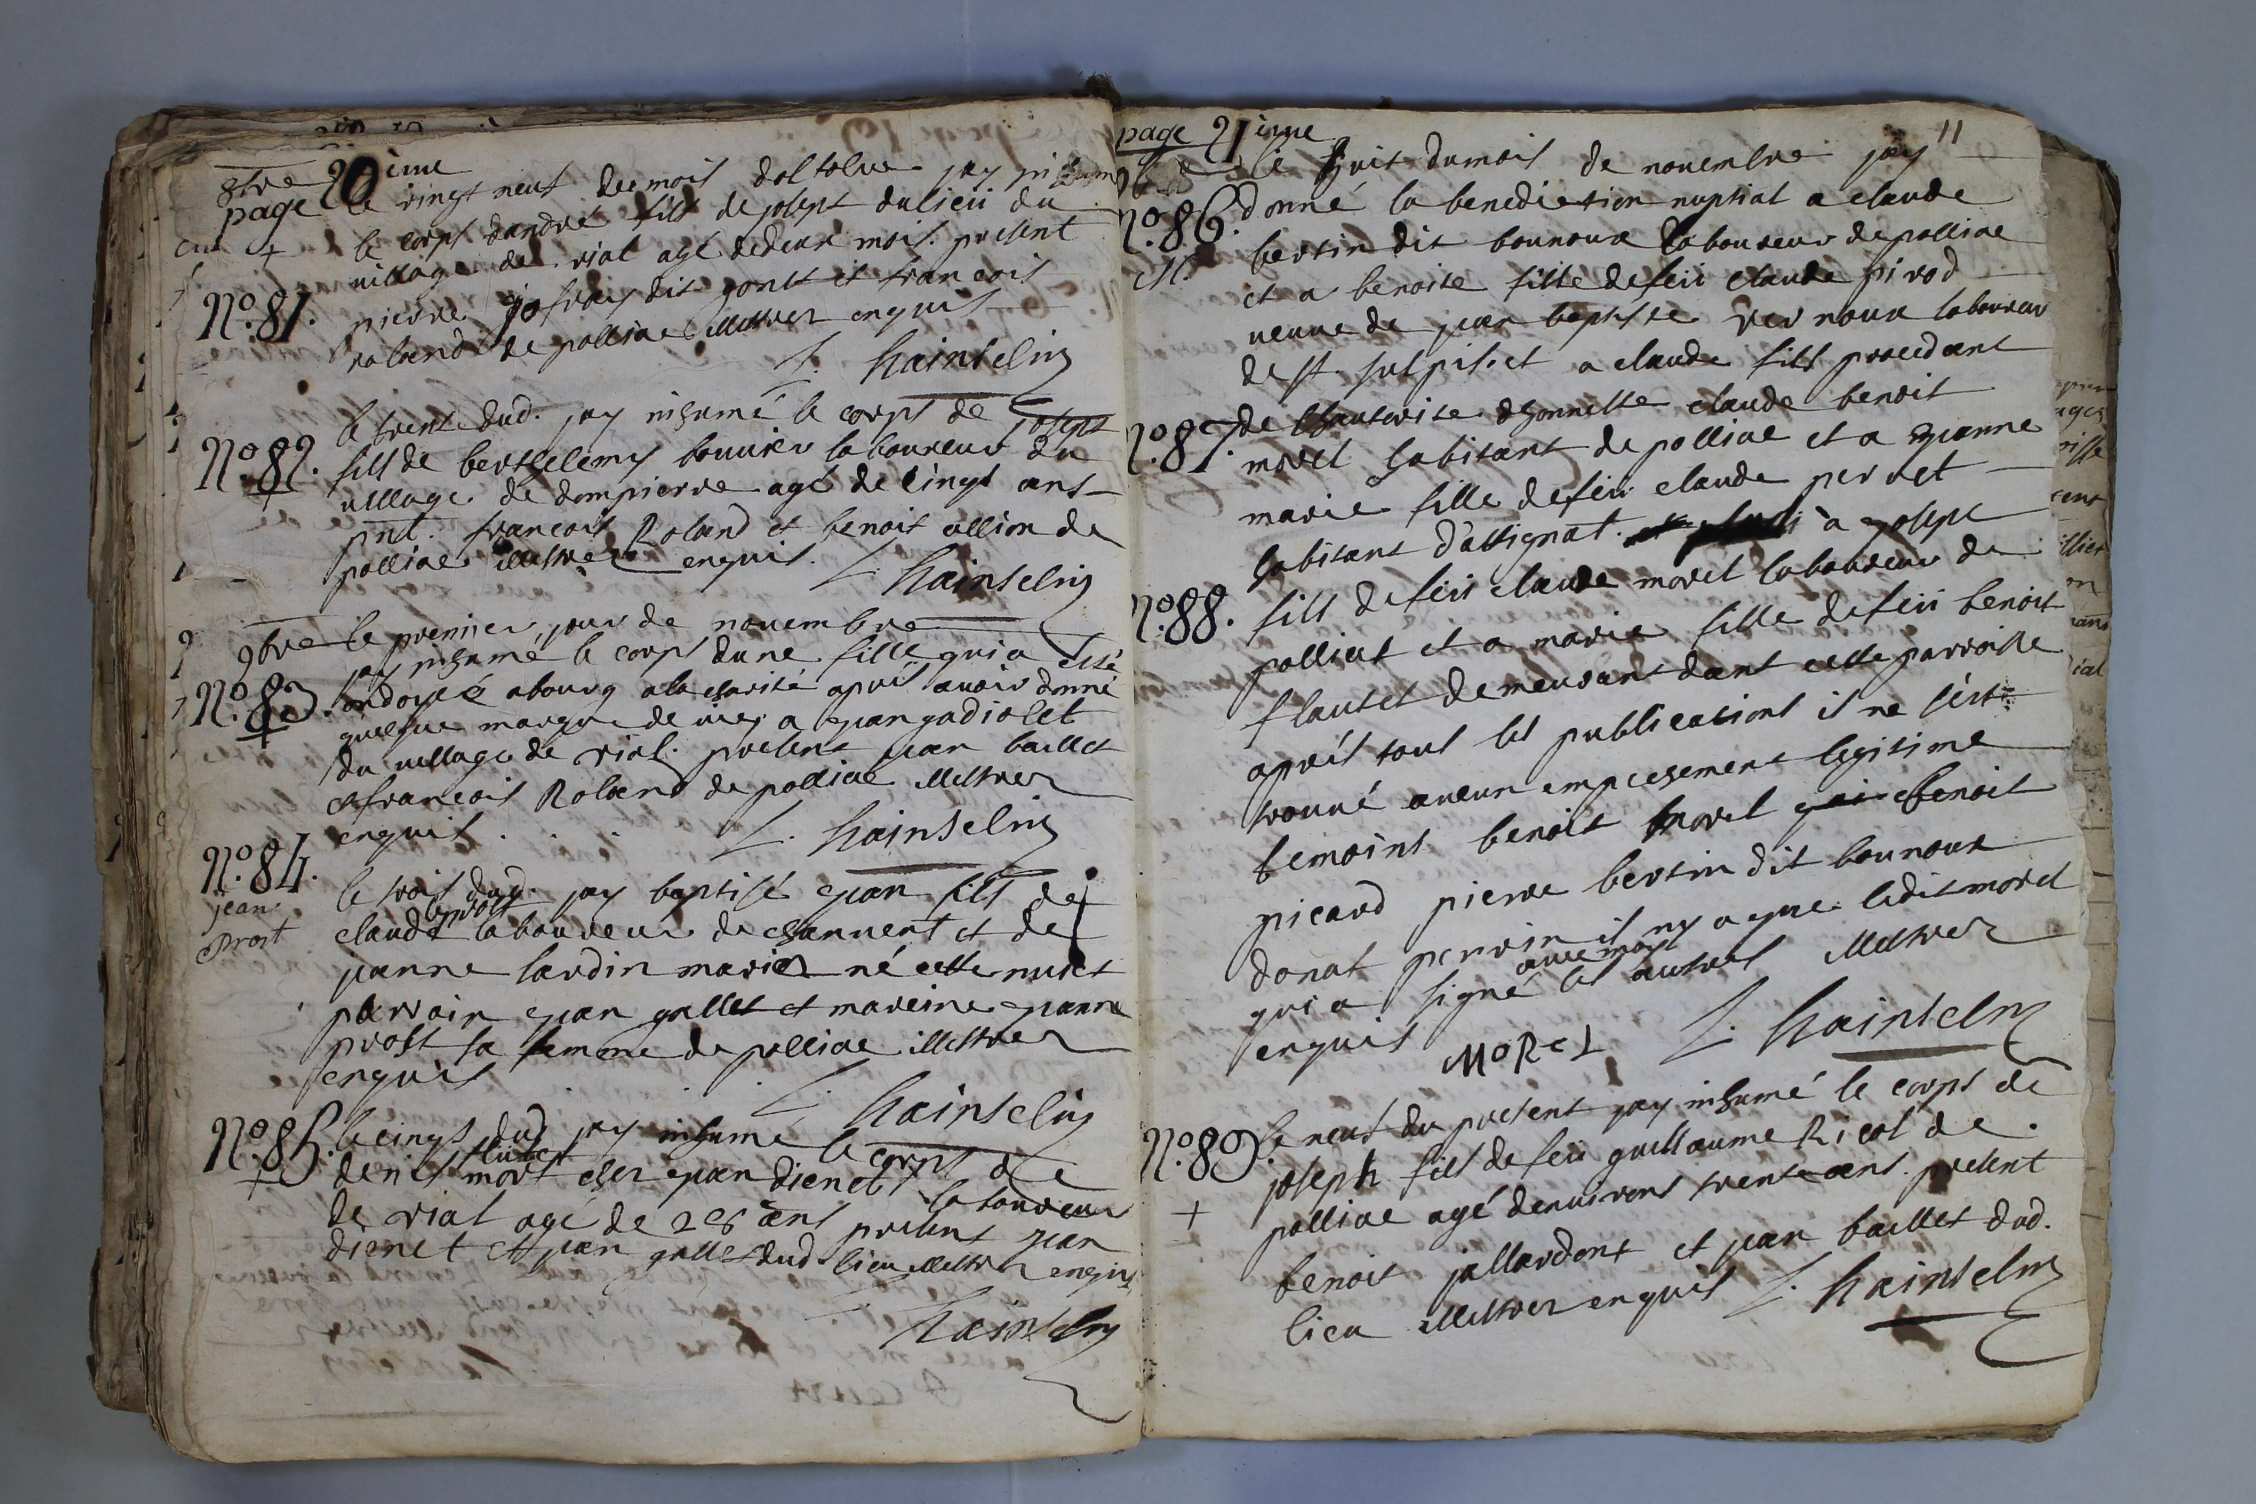 8bre
page 20ième
le vingt neuf du mois doctobre jay inhumé
le corps dandré fils de joseph dulieu du
village de vial agé dedeux mois. present
No. 81.
pierre jofray dit gonet et francois
roland de polliac illettrez enquis
L. hainselin
le trent dud. jay inhumé le corps de joseph
No. 82.
fils de berthelemy bouvier laboureur du
village de dompierre agé de vingt ans
pnt. francois Roland et benoit allion de
polliac illettrez enquis.
L. hainselin
9bre le premier jour de novembre
jay inhumé le corps dune fille qui a esté
No. 83.
ondoyée abourg ala charité apres avoir donné
quelque marque de vie, a jean gadiolet
du village de vial. present jean baillet
et francois Roland de polliac illettrez
enquis.
L. hainselin
No. 84.
jean
prost
le trois dud. jay baptisé jean fils de
claude prost laboureur de channent et de
janne lardin mariez né cette nuict
parrain jean gallet et mareine janne
prost sa femme de polliac illettrez
enquis
L. hainselin
No. 85.
le cinqs dud jay inhumé le corps de
denis mort chez jean dienet laboureur
de vial agé de 28 ans present jean
dienet et jean gallet dud. lieu illettrez enquis
L. hainselin
page 21ième
11
le huit dumois de novembre jay
No. 86.
donné la benediction nuptial a claude
bertin dit bounoux laboureur de polliac
M.
et a benoite fille defeu claude pirod
veuve de jean baptiste vernoux laboureur
de st. sulpis. et a claude fils procedant
No. 87.
de lhautorite dhonneste claude benoit
morel habitant de polliac et a janne
marie fille defeu claude pernet
habitant d'attignat. à joseph
No. 88.
fils defeu claude morel laboureur de
polliat et a marie fille defeu benoit
flautet demeurant dant cette parroisse
après tous les publications il ne sest
trouvé aucun empeschement legitime
temoins benoit morel benoit
picard pierre bertin dit bounoux
donat perrin il ny a que ledit morel
qui a signé avec moy les autres illettrez
enquis
MORel
L. hainselin
No. 89.
le neuf du present jay inhumé le corps de
joseph fils defeu guillaume Ricol de
polliac agé denvirons trente ans. present
benoit jallardont et jean baillet dud.
lieu illettrez enquis
L. hainselin